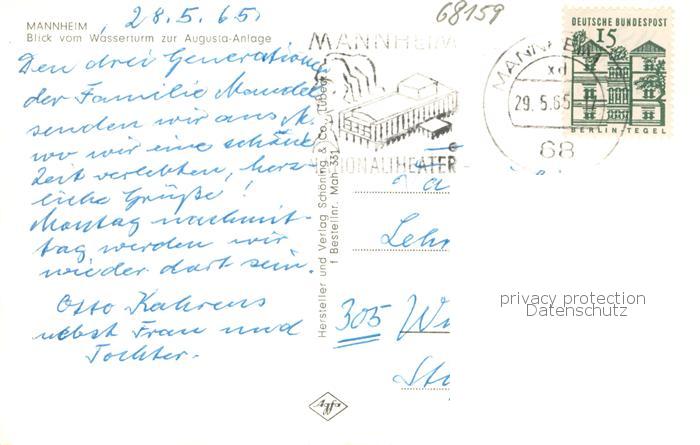 28.5.65.
68159
MANNHEIM
Blick vom Wasserturm zur Augusta-Anlage
Den drei Generationen
der Familie Mandel
senden wir aus M.
wo wir eine schöne
Zeit verlebten, herz-
liche Grüße!
Montag nachmit-
tag werden wir
wieder dort sein.
Otto Kahrens
nebst Frau und
Tochter.
Hersteller und Verlag Schöning & Co., Lübeck
Bestellnr. Mah 351
MANNHEIM
NATIONALTHEATER
MANNHEIM
xd
29.5.65
68
DEUTSCHE BUNDESPOST
15
BERLIN-TEGEL
Lehr
305 Wi
privacy protection
Datenschutz
Agfa